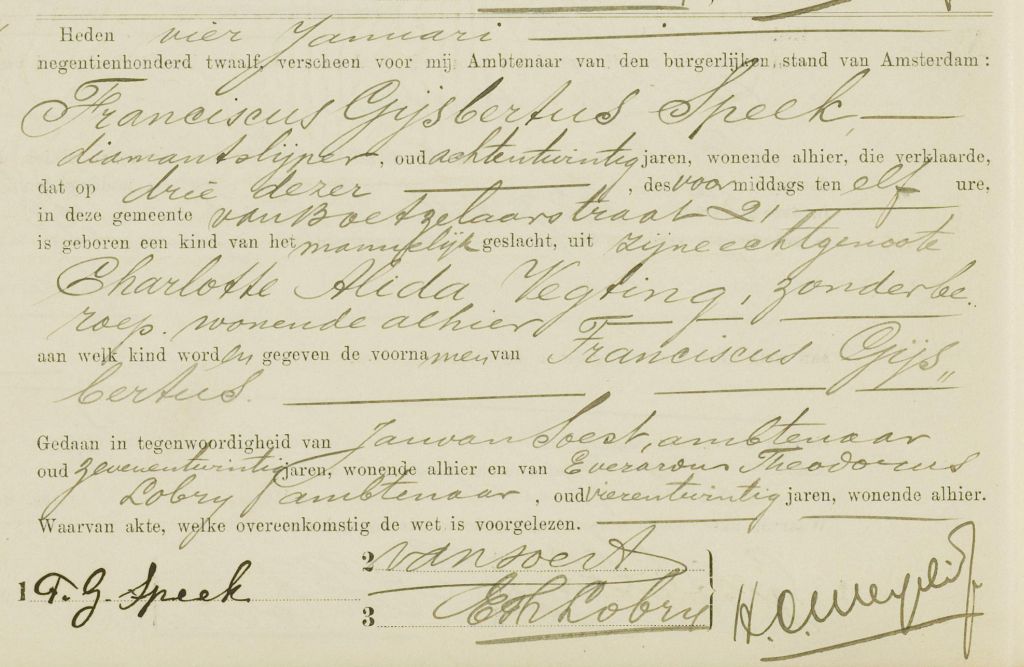 Heden vier Januari
negentienhonderd twaalf, verscheen voor mij Ambtenaar van den burgerlijken stand van Amsterdam:
Franciscus Gijsbertus Speek,
diamantslijper, oud achtentwintig jaren, wonende alhier, die verklaarde,
dat op drie dezer, des voormiddags ten elf ure,
in deze gemeente van Boetzelaarstraat 21
is geboren een kind van het mannelijk geslacht, uit zijne echtgenoote
Charlotte Alida Vegting, zonder be„
roep, wonende alhier
aan welk kind worden gegeven de voornamen van Franciscus Gijs„
bertus.
Gedaan in tegenwoordigheid van Jan van Soest, ambtenaar
oud zevenentwintig jaren, wonende alhier en van Everardus Theodorus
Lobry ambtenaar, oud vierentwintig jaren, wonende alhier.
Waarvan akte, welke overeenkomstig de wet is voorgelezen.
2 van Soest
1 F. G. Speek
3 E Th Lobry